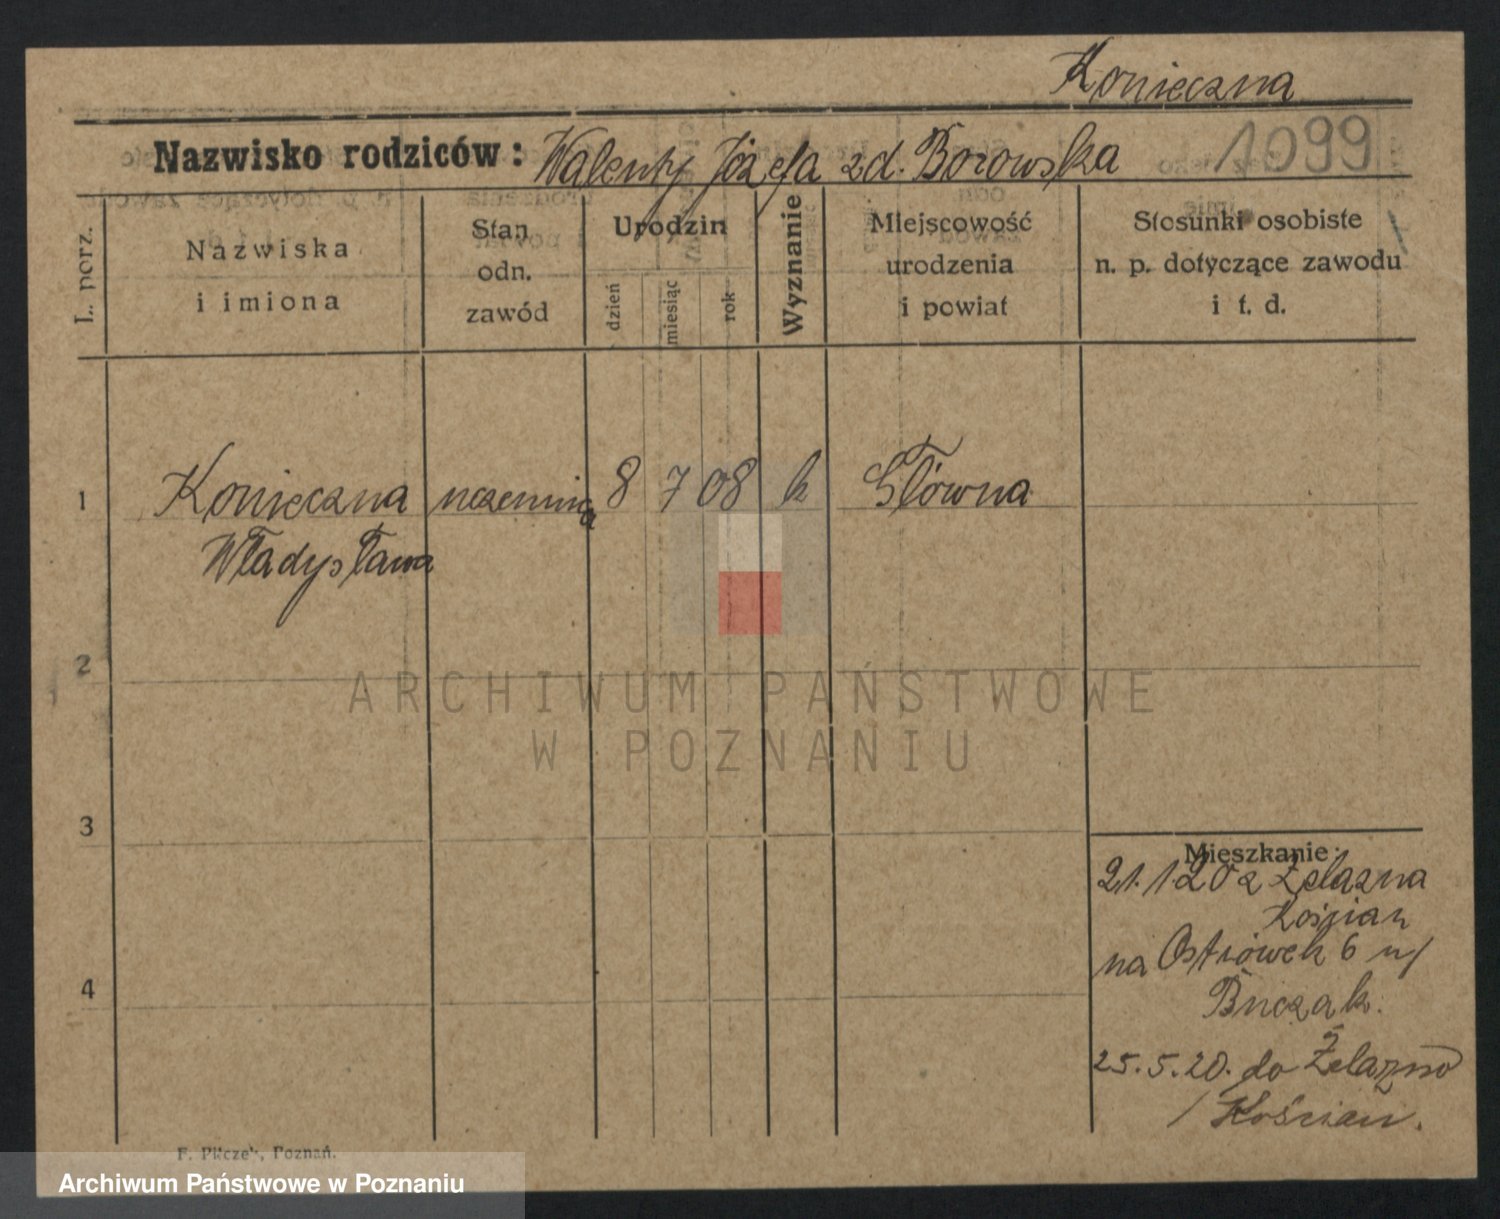 Konieczna
Nazwisko rodziców: Walenty Józefa zd. Borowska 1099
L. porz.
Nazwiska
i imiona
Stan
odn.
zawód
Urodzin
dzień
miesiąc
rok
Wyznanie
Miejscowość
urodzenia
i powiat
Stosunki osobiste
n. p. dotyczące zawodu
i t. d.
1 Konieczna uczennica 8 7 08 k Główna
Władysława
2
ARCHIWUM PAŃSTWOWE
W POZNANIU
3
Mieszkanie:
21.1.20 z Żelazna
Kościan
na Ostrówek 6 u/
4
25.5.20. do Żelazno
/ Kościan.
F. Pilczek, Poznań.
Archiwum Państwowe w Poznaniu